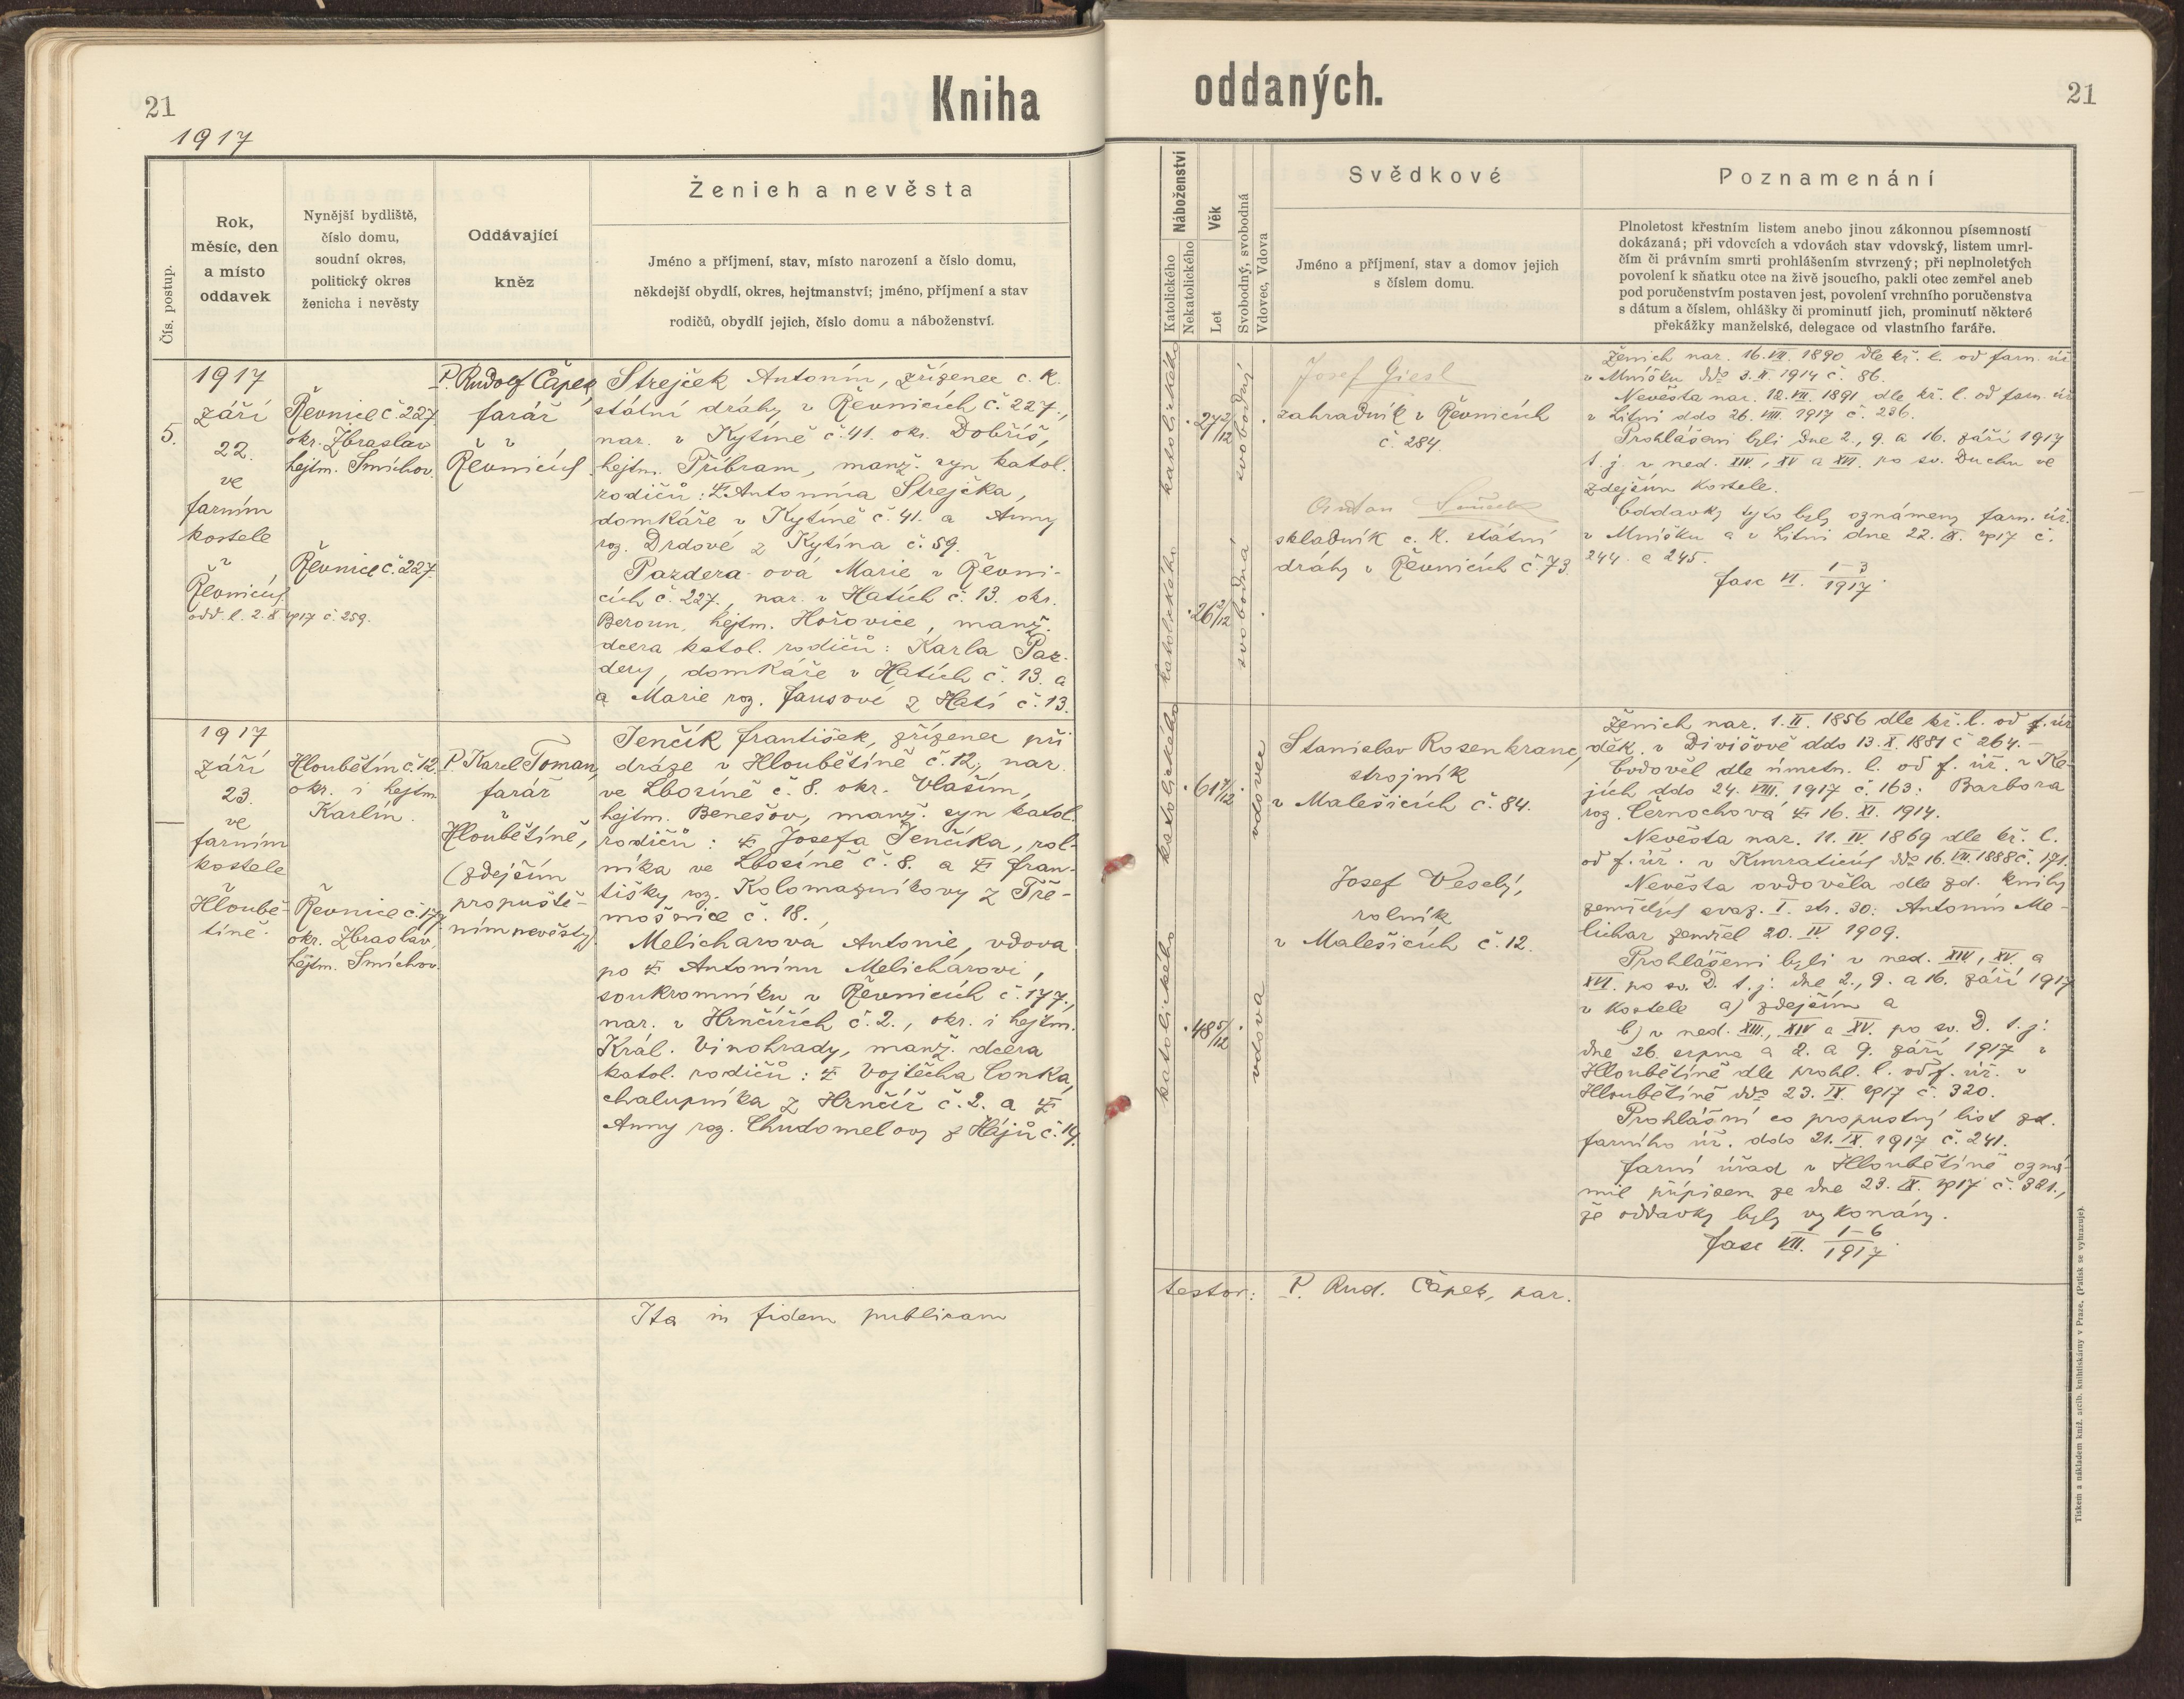 21
Kniha
1917
Čís. postup.
Rok,
měsíc, den
a místo
oddavek
Nynější bydliště,
číslo domu,
soudní okres,
politický okres
ženicha i nevěsty
Oddávající
kněz
Ženich a nevěsta
Jméno a příjmení, stav, místo narození a číslo domu,
někdejší obydlí, okres, hejtmanství; jméno, příjmení a stav
rodičů, obydlí jejich, číslo domu a náboženství.
5.
1917
září
22.
ve
farním
kostele
v
Řevnicích
odd. l. 2. X 1917 č. 259.
Řevnice č. 227.
okr. Zbraslav
hejtm. Smíchov.
Řevnice č. 227.
P. Rudolf Čapek,
farář
v
Řevnicích.
Strejček Antonín, zřízenec c. k.
státní dráhy v Řevnicích č. 227.,
nar. v Kytíně č. 41. okr. Dobříš,
hejtm. Příbram, manž. syn katol.
rodičů: Antonína Strejčka,
domkáře v Kytíně č. 41. a Anny
roz. Drdové z Kytína č. 59.
Pazdera-ová Marie v Řevni-
cích č. 227., nar. v Hatích č. 13. okr.
Beroun, hejtm. Hořovice, manž.
dcera katol. rodičů: Karla Paz-
dery, domkáře v Hatích č. 13. a
a Marie roz. Jansové z Hatí č. 13.
1917
září
23.
ve
farním
kostele
v
Hloubě-
tíně.
Hloubětín č. 12.
okr. i hejtm.
Karlín.
Řevnice č. 177.
okr. Zbraslav,
hejtm. Smíchov.
P. Karel Toman,
farář
v
Hloubětíně,
(zdejším
propuště-
ním nevěsty).
Jenčík František, zřízenec při
dráze v Hloubětíně č. 12, nar.
ve Lbosíně č. 8. okr. Vlašim,
hejtm. Benešov, manž. syn katol.
rodičů: Josefa Jenčíka, rol-
níka ve Lbosíně č. 8. a Fran-
tišky roz. Kolomazníkovy z Tře-
mošnice č. 18.
Melicharová Antonie, vdova
po Antonínu Melicharovi,
soukromníku v Řevnicích č. 177.,
nar. v Hrnčířích č. 2., okr. i hejtm.
Král. Vinohrady, manž. dcera
katol. rodičů: Vojtěcha Conka,
chalupníka z Hrnčíř č. 2. a
Anny roz. Chudomelovy z Hájů č. 14.
Ita in fidem publicam
oddaných.
21
Náboženství
Katolického
Nekatolického
Věk
Let
Svobodný, svobodná
Vdovec, Vdova
Svědkové
Jméno a příjmení, stav a domov jejich
s číslem domu.
Poznamenání
Plnoletost křestním listem anebo jinou zákonnou písemností
dokázaná; při vdovcích a vdovách stav vdovský, listem umrl-
čím či právním smrti prohlášením stvrzený; při neplnoletých
povolení k sňatku otce na živě jsoucího, pakli otec zemřel aneb
pod poručenstvím postaven jest, povolení vrchního poručenstva
s dátum a číslem, ohlášky či prominutí jich, prominutí některé
překážky manželské, delegace od vlastního faráře.
katolického
27 2/12
svobodný
katolického
26 2/12
svobodná
Josef Giesl
zahradník v Řevnicích
č. 284.
skladník c. k. státní
dráhy v Řevnicích č. 73.
Ženich nar. 16. VII. 1890 dle kř. l. od farn. úř.
v Mníšku ddo 3. II 1914 č. 86.
Nevěsta nar. 12. VII. 1891 dle kř. l. od farn. úř.
v Litni ddo 26. VIII. 1917 č. 236.
Prohlášeni byli dne 2., 9. a 16. září 1917
t. j. v ned. XIV., XV a XVI. po sv. Duchu ve
zdejším kostele.
Oddavky tyto byly oznámeny farn. úř.
v Mníšku a v Litni dne 22. IX. 1917 č.
244. a 245.
Fasc VI. 1-3/1917.
katolického
61 7/12
vdovec
katolického
48 5/12
vdova
Stanislav Rosenkranc,
strojník
v Malešicích č. 84.
Josef Veselý,
rolník
v Malešicích č. 12.
Ženich nar. 1. II. 1856 dle kř. l. od f. úř.
děk. v Divišově ddo 13. X. 1881 č 264.-
Ovdověl dle úmrtn. l. od f. úř. v Ke-
jích ddo 24. VIII. 1917 č. 163: Barbora
roz. Černochová 16. XI. 1914.
Nevěsta nar. 11. IV 1869 dle kř. l.
od f. úř. v Kunraticích ddo 16. VII. 1888 č. 171.
Nevěsta ovdověla dle zd. knihy
zemřelých svaz. I. str. 30: Antonín Me-
lichar zemřel 20. IV 1909.
Prohlášeni byli v ned. XIV., XV. a
XVI. po sv. D. t. j. dne 2., 9. a 16. září 1917
v kostele a) zdejším a
b) v ned. XIII., XIV a XV. po sv. D. t. j.
dne 26. srpna a 2. a 9. září 1917 v
Hloubětíně dle prohl. l. od f. úř. v
Hloubětíně ddo 23. IX. 1917 č. 320.
Prohlášní co propustný list zd.
farního úř. ddo 21. IX. 1917 č. 241.
Farní úřad v Hloubětíně ozná-
mil přípisem ze dne 23. IX. 1917 č. 321.,
že oddavky byly vykonány.
Fasc VII. 1-6/1917.
testor: P. Rud. Čapek, par.
Tiskem a nákladem kníž. arcib. knihtiskárny v Praze. (Patisk se vyhrazuje).